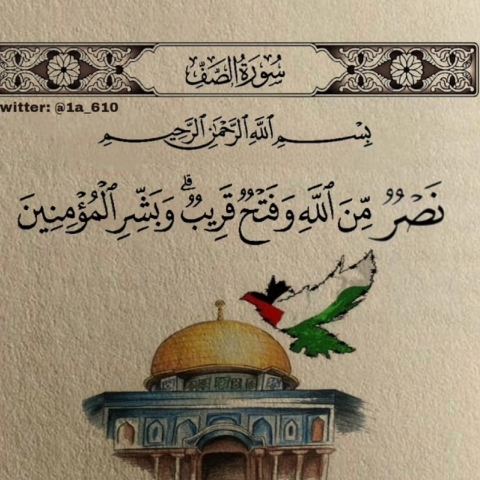 سُورَةُ الصَّفِّ
witter: @1a_610
بِسْمِ ٱللَّهِ ٱلرَّحْمَٰنِ ٱلرَّحِيمِ
نَصْرٌ مِّنَ ٱللَّهِ وَفَتْحٌ قَرِيبٌ ۗ وَبَشِّرِ ٱلْمُؤْمِنِينَ